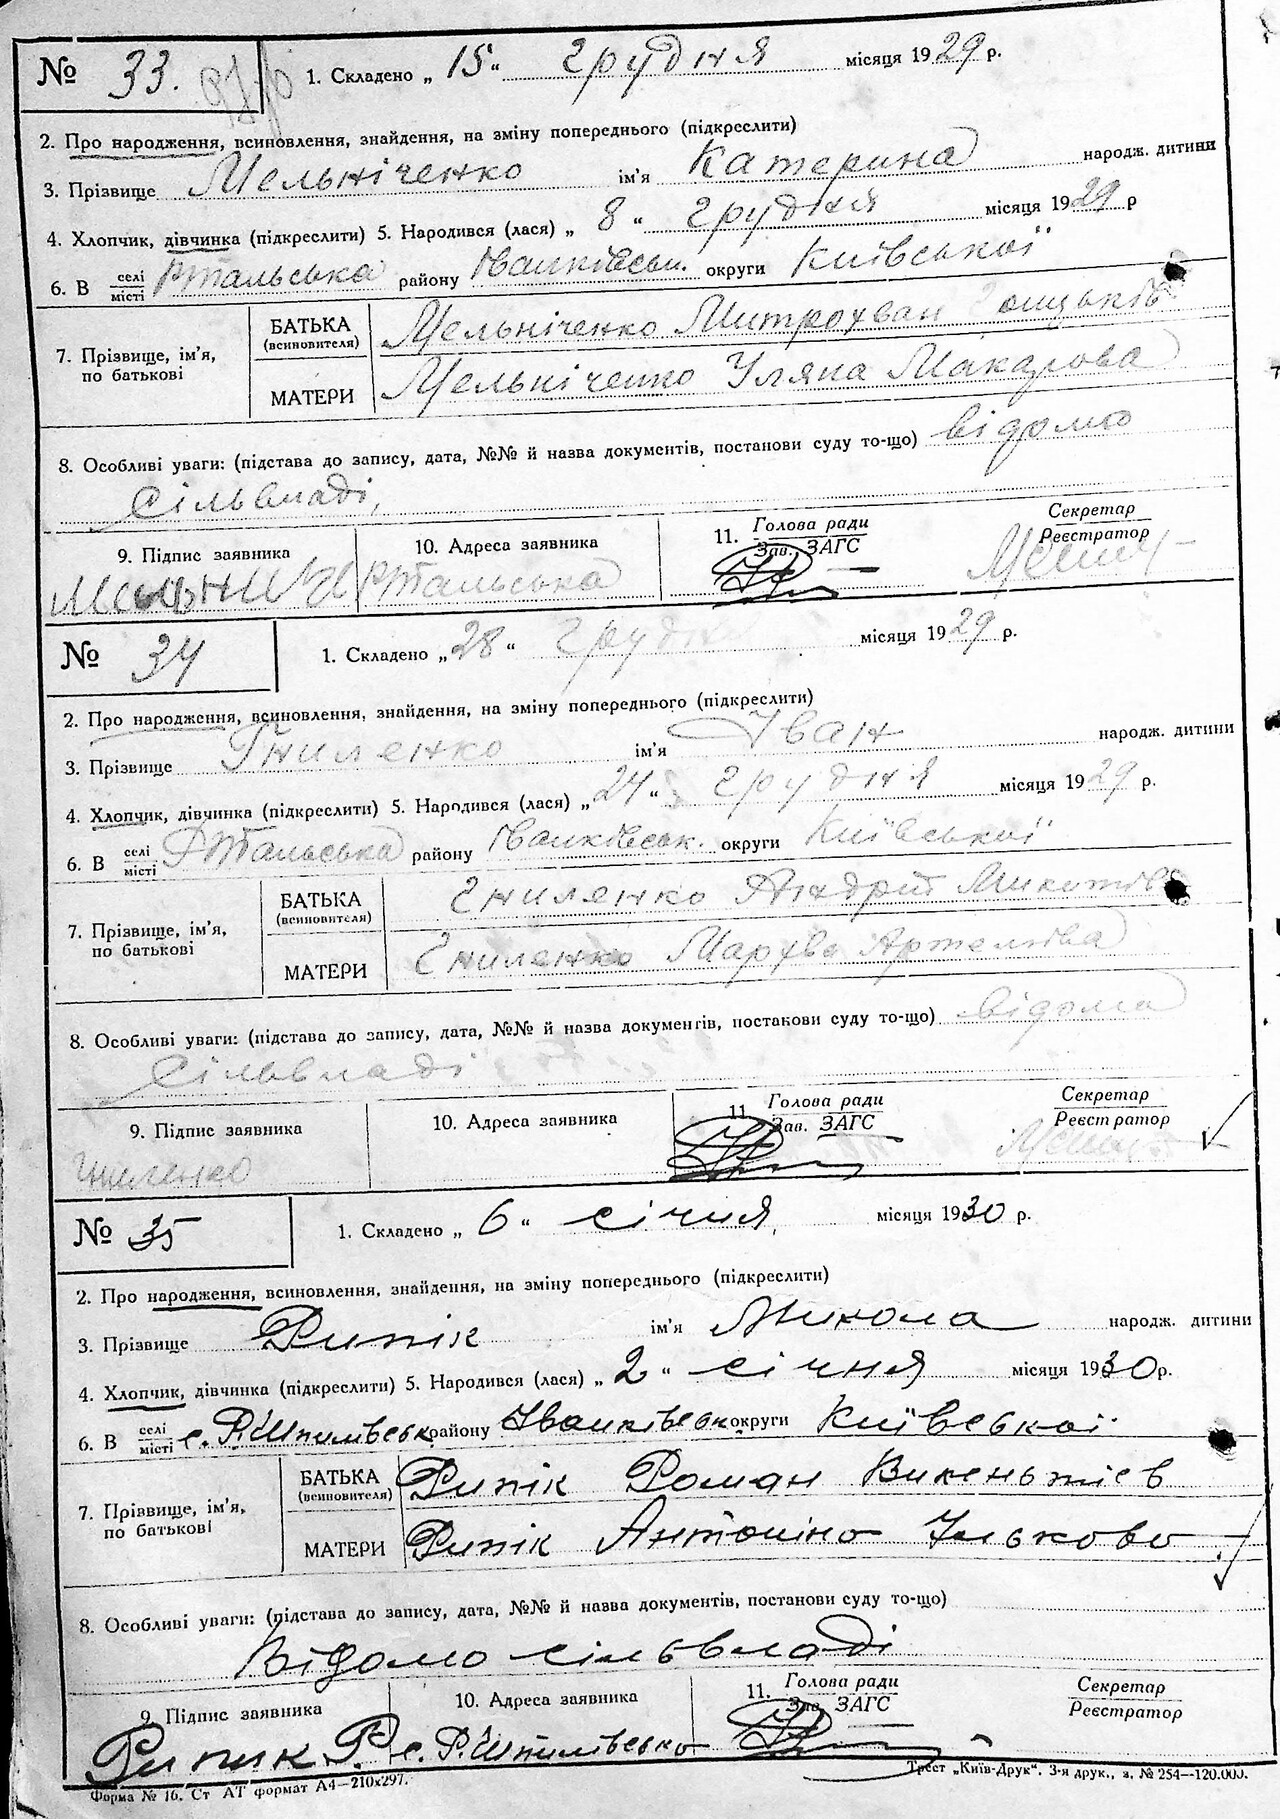 № 33. 1. Складено „ 15 “ грудня місяця 1929 р.
2. Про народження, всиновлення, знайдення, на зміну попереднього (підкреслити)
3. Прізвище Мельніченко ім'я Катерина народж. дитини
4. Хлопчик, дівчинка (підкреслити) 5. Народився (лася) „ 8 “ грудня місяця 1929 р
6. В селі місті Ртальська району Іванківськ. округи Київської
7. Прізвище, ім'я, по батькові
БАТЬКА (всиновителя) Мельніченко Митрохван
МАТЕРИ Мельніченко Уляна Макарова
8. Особливі уваги: (підстава до запису, дата, №№ й назва документів, постанови суду то-що) відомо
сільвладі,
9. Підпис заявника 10. Адреса заявника Ртальська 11. Голова ради Зав. ЗАГС Секретар Реєстратор
№ 34 1. Складено „ 28 “ грудн місяця 1929 р.
2. Про народження, всиновлення, знайдення, на зміну попереднього (підкреслити)
3. Прізвище Гниленко ім'я Іван народж. дитини
4. Хлопчик, дівчинка (підкреслити) 5. Народився (лася) „ 24 “ грудня місяця 1929 р.
6. В селі місті Ртальська району Іванківськ. округи Київської
7. Прізвище, ім'я, по батькові
БАТЬКА (всиновителя) Гниленко Андрій Микитів
МАТЕРИ Гниленко Мархва Артемова
8. Особливі уваги: (підстава до запису, дата, №№ й назва документів, постанови суду то-що) відома
Сільвладі
9. Підпис заявника Гниленко 10. Адреса заявника 11. Голова ради Зав. ЗАГС Секретар Реєстратор
№ 35 1. Складено „ 6 “ січня місяця 1930 р.
2. Про народження, всиновлення, знайдення, на зміну попереднього (підкреслити)
3. Прізвище Рипік ім'я Микола народж. дитини
4. Хлопчик, дівчинка (підкреслити) 5. Народився (лася) „ 2 “ січня місяця 1930 р.
6. В селі місті с. Р. Шпилівськ району Іванківськ округи Київської
7. Прізвище, ім'я, по батькові
БАТЬКА (всиновителя) Рипік Роман Викентьтієв
МАТЕРИ Рипік Антоніна Ількова
8. Особливі уваги: (підстава до запису, дата, №№ й назва документів, постанови суду то-що)
Відомо сільвладі
9. Підпис заявника Рипик Р. 10. Адреса заявника с. Р. Шпилівська 11. Голова ради Зав. ЗАГС Секретар Реєстратор
Форма № 16. Ст АТ формат А4—210x297. Трест „Київ-Друк“. 3-я друк., з. № 254—120.000.